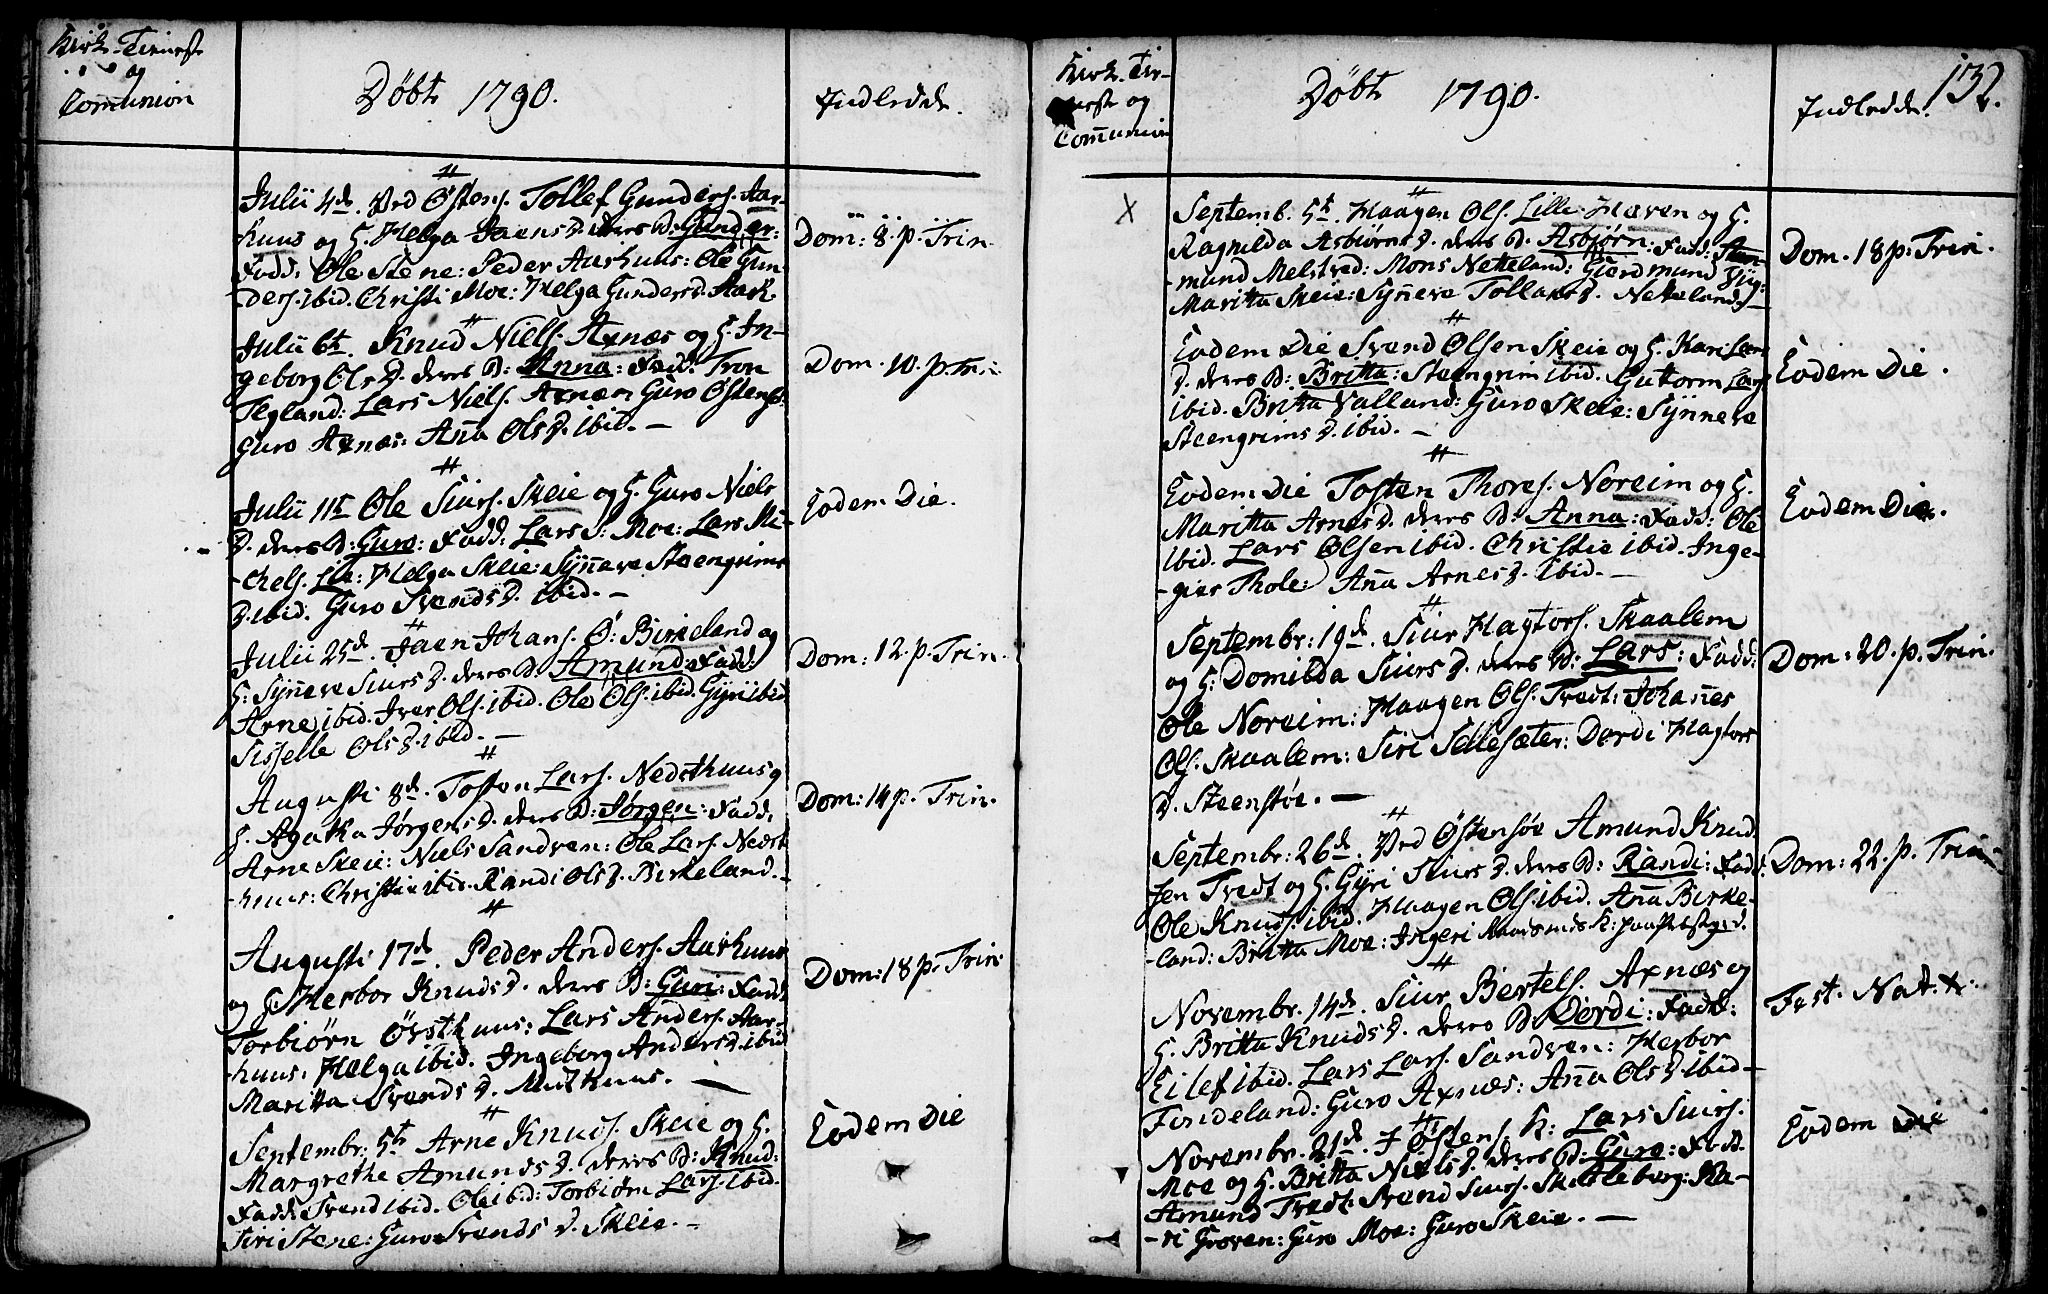 Kirke-Tieneste
og
Communion
Døbte 1790.
Indledde.
#
Julii 4de. Ved Østens. Tollef Gunders. Aar-
huus og H. Helga Jaens D. deres B: Gunder:
Fadd: Ole Stene: Peder Aarhuus: Ole Gun-
ders. ibid. Christi Moe: Helga Gunders D. Aarh.
Dom: 8. p. Trin.
#
Julii 6te. Knud Niels. Axnæs og H. In-
geborg Ols D. deres B: Anna: Fadd. Tron
Tegland: Lars Niels. Axnæs Guro Østensø:
Guro Axnæs: Aña Ols D. ibid. —
Dom. 10. p. Tri.
#
Julii 11te Ole Siurs. Skeie og H. Guro Niels
D. deres B: Guro: Fadd: Lars S: Moe: Lars Mi-
chels. Lie: Helga Skeie: Syñeve Steengrims
D. ibid. Guro Svends D. ibid. —
Eodem Die.
#
Julii 25de. Jaen Johans. Ø: Birkeland og
H: Syñeve Siurs D. deres B: Amund: Fadd:
Arne ibid. Iver Ols. ibid. Ole Ols. ibid. Gyri ibid
Sisselle Ols D. ibid. —
Dom: 12. p. Trin.
#
Augusti 8de. Tosten Lars. Nedsthuus og
H. Agatha Jørgens D. deres B: Jørgen: Fadd:
Arne Skeie: Niels Sandven: Ole Lars. Nedst
-huus: Christie ibid. Randi Ols D. Birkeland. -
Dom: 14 p. Trin.
#
Augusti 17de. Peder Anders. Aarhuus
og H. Herbor Knuds D. deres B: Guri: Fadd
Torbiørn Øvsthuus: Lars Anders. Aar-
huus: Helga ibid. Ingeborg Anders D. ibid
Maritta Svends D. Muthuus. —
Dom: 18 p. Trin.
#
Septembr. 5te Arne Knuds. Skeie og H.
Margrethe Amunds D. deres B: Knud:
Fadd: Svend ibid. Ole ibid: Torbiørn Lars. ibid.
Siri Stene: Guro Svends D. Skeie. —
Eodem Die
Kirke-Tie-
neste og
Communion
Døbte 1790.
Indledde.
132.
X
#
Septemb. 5te. Haagen Ols. Lille-Haeven og H.
Ragnilda Asbiørns D. deres B. Asbjørn: Fadd:
mund Melstved: Mons Netteland: Giermund
Maritta Skeie: Syñeve Tollaks D. Netteland. —
Dom. 18 p. Trin.
#
Eodem Die Svend Olsen Skeie og H. Kari Lars
D. deres B: Britta: Steengrim ibid. Guttorm Lars.
ibid. Britta Valland: Guro Skeie: Sÿnneve
Steengrims D. ibid. —
Eodem Die.
#
Eodem Die Tosten Thores. Noreim og H.
Maritta Arnes D. deres B: Anna: Fadd: Ole
ibid. Lars Olsen ibid. Christie ibid. Inge-
-gier Thole: Aña Arnes D. ibid. —
Eodem Die.
#
Septembr: 19de. Siur Hagtors. Skaalem
og H: Domilda Siurs D. deres B: Lars: Fadd:
Ole Noreim: Haagen Ols. Tvedt: Johañes
Ols. Skaalem: Siri Sellesæter: Dordi Hagtors
D. Steenstøe. —
Dom: 20. p. Trin.
#
Septembr: 26de. Ved Østensøe Amund Knud-
sen Tvedt og H. Gÿri Siurs D. deres B: Randi: Fadd:
Ole Knuds. ibid. Haagen Ols. ibid. Aña Birke-
-land: Britta Moe: Ingeri
Dom: 22. p. Trin.
#
Novembr. 14de. Siur Bertels. Axnæs og
H. Britta Knuds D. deres B: Dordi: Fadd:
Eilef ibid. Lars Lars. Sandven: Herbor
Fondeland: Guro Axnæs: Aña Ols D. ibid —
Fest. Nat. X.
#
Novembr. 21de. I Østens. K: Lars Siurs.
Moe og H. Britta Niels D. deres B: Guro: Fadd.
Amund Tvedt: Svend Siurs. Skeie: Ka-
-ri Groven: Guro Moe: Guro Skeie. —
Eodem Die